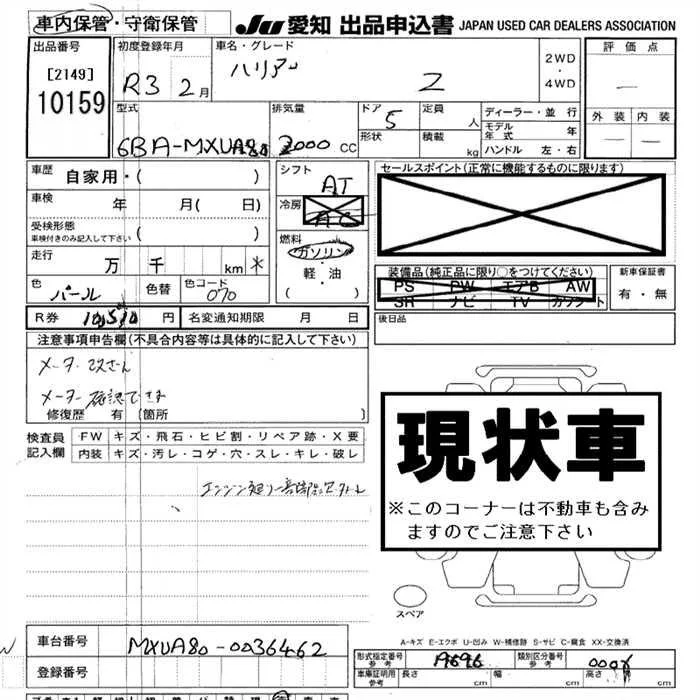 車内保管・守衛保管
JU 愛知 出品申込書 JAPAN USED CAR DEALERS ASSOCIATION
出品番号 [2149] 10159
初度登録年月 R3 2月
車名・グレード ハリアー Z
2WD・4WD
評価点 —
外装 内装
— —
型式 6BA-MXUA80
排気量 2000 CC
ドア 5
形状
定員 人
積載 kg
ディーラー・並行
モデル年式 年
ハンドル 左・右
車歴 自家用・( )
車検 年 月( 日)
受検形態 ( )
車検付きのみ記入して下さい
走行 万 千 km *
色 パール 色替 色コード 070
シフト AT
冷房 AC
燃料 ガソリン・軽・油 ( )
セールスポイント(正常に機能するものに限ります)
装備品(純正品に限り○をつけてください)
PS PW エアB AW
SR ナビ TV カワシート
新車保証書
有・無
R券 10,510 円 名変通知期限 月 日
後日品
注意事項申告欄(不具合内容等は具体的に記入して下さい)
メーター改ざん
メーター確認できず
修復歴 有 (箇所 )
検査員記入欄
FW キズ・飛石・ヒビ割・リペア跡・X要
内装 キズ・汚レ・コゲ・穴・スレ・キレ・破レ
現状車
※このコーナーは不動車も含みますのでご注意下さい
スペア
A-キズ E-エクボ U-凹み W-補修跡 S-サビ C-腐食 XX-交換済
車台番号 MXUA80-0036462
登録番号
形式指定番号 参考 19696
類別区分番号 参考
車庫証明用 参考 長さ 幅 高さ